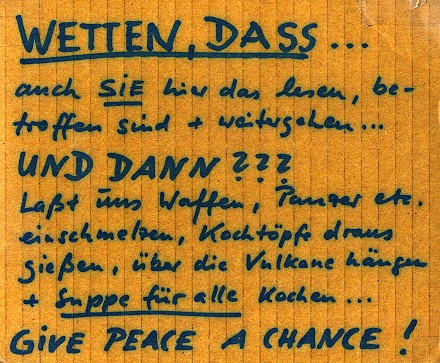 WETTEN, DASS...
auch SIE hier das lesen, be-
troffen sind + weitergehen...
UND DANN???
Laßt uns Waffen, Panzer etc.
einschmelzen, Kochtöpfe draus
gießen, über die Vulkane hängen
+ Suppe für alle Kochen...
GIVE PEACE A CHANCE!